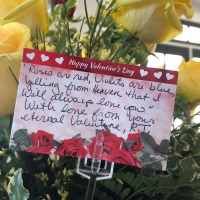 Happy Valentine's Day
"Roses are red, Violets are blue,
Yelling from Heaven that I
will always love you"
With love from your
eternal Valentine, R.J.